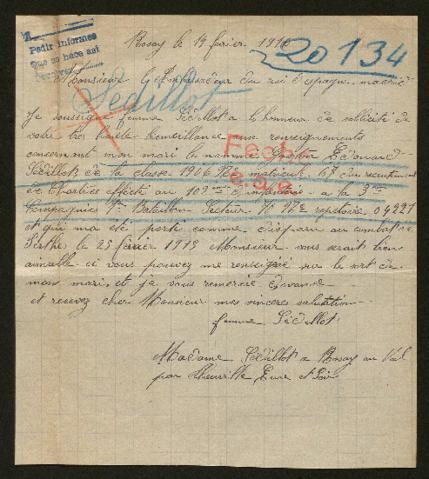 Pedir informes
Que se hace así
20134
Rosay le 19 fevrier 1916
Monsieur l'Embassadeur du roi d'espagne madrid
Sédillot
Je soussigné femme Sédillot a l'honneur de sollicité de
votre haute bienveillance des renseignements
concernant mon mari le nommé Edouard
Sédillot de la classe 1906 No matricul. 68 du recrutement
de Chartres effecté au 102me d'infanterie a la 3me
Compagnies 1er Bataillon Secteur No
et qui ma été porté comme disparu au combat
le 25 fevrier Monsieur vous serait bien
aimable si vous pouvez me renseigné sur le sort de
mon mari, et je vous remercie d'avance
et recevez cher Monsieur mes sinceres salutation
femme Sédillot
Madame Sédillot a Rosay au Val
par Theuville Eure et Loir